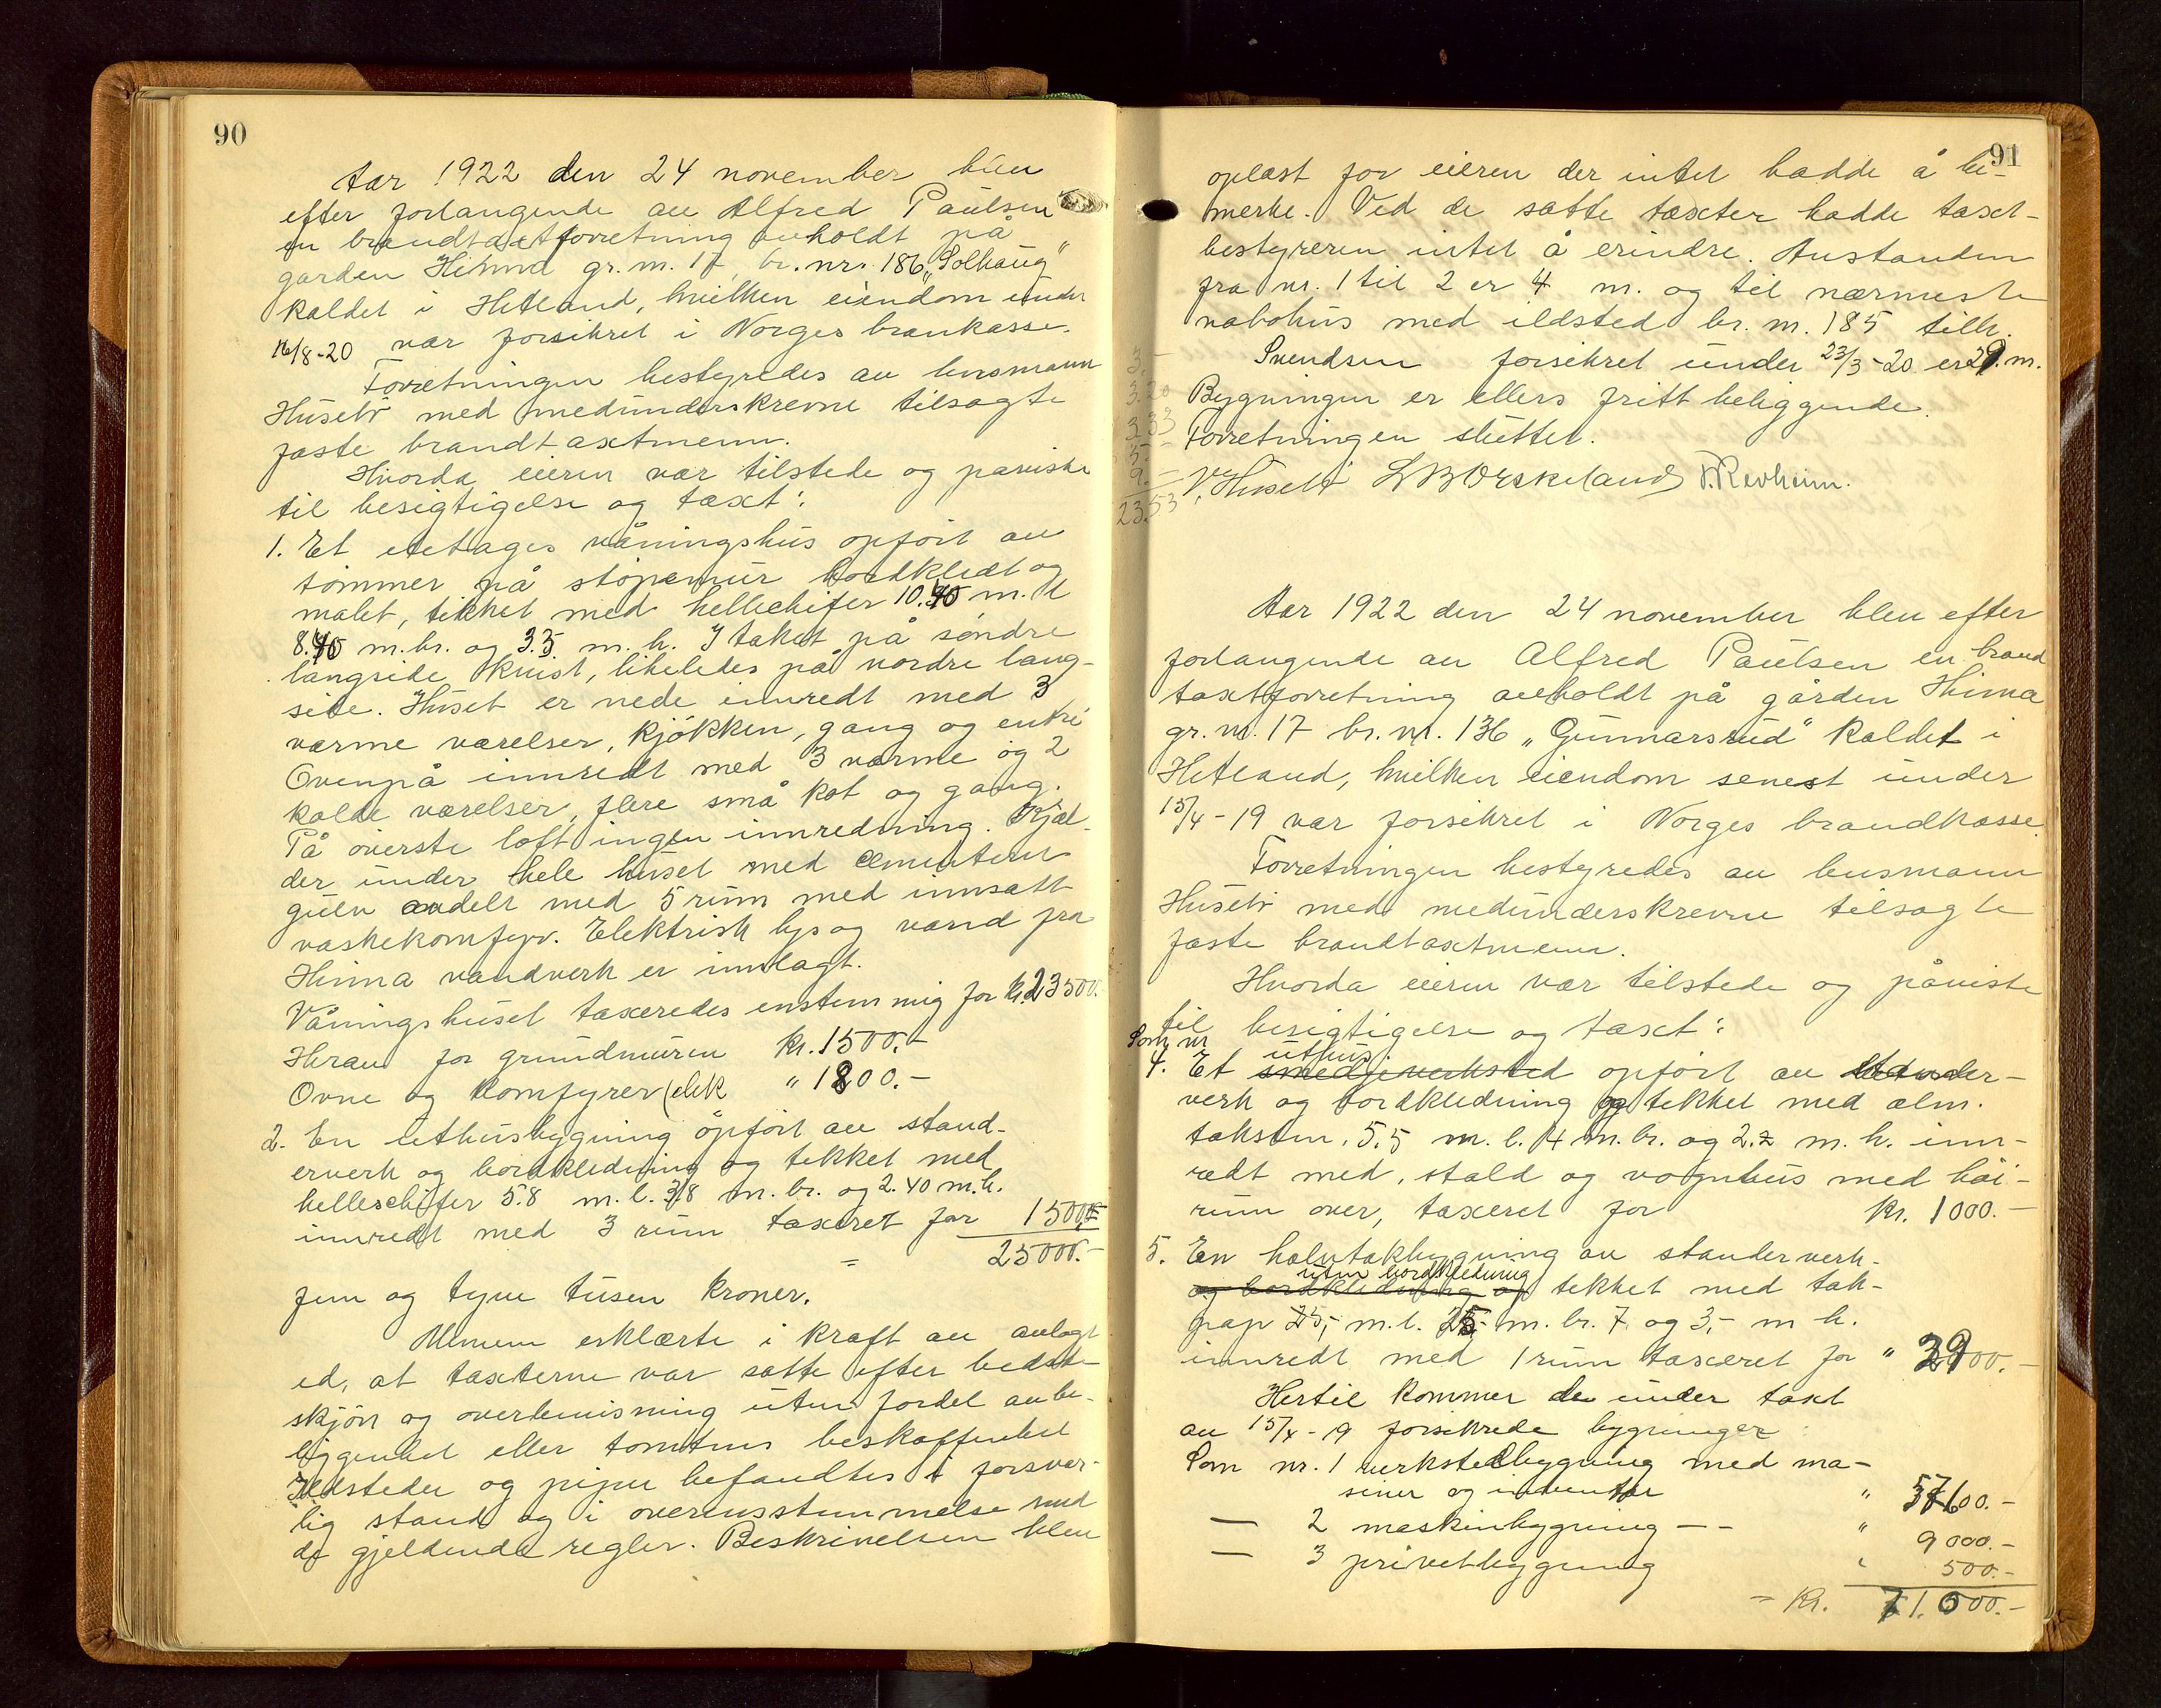 90
Aar 1922 den 24 november blev
efter forlangende av Alfred Paulsen
en brandtaxtforretning avholdt på
garden Hinna gr. nr. 17, br. nr. 186 „Solhaug"
kaldet i Hetland, hvilken eiendom under
16/8-20 var forsikret i Norges brankasse.
Forretningen bestyredes av lensmann
Husebø med medunderskrevne tilsagte
faste brandtaxtmenn.
Hvorda eieren var tilstede og paaviste
til besigtigelse og taxt:
1. Et etetages våningshus opført av
tømmer på støpemur bordkledt og
malet, tekket med helleskifer 10.40 m. l
8.40 m. br. og 3.5 m. h. I taket på søndre
langside kvist, likeledes på nordre lang-
side. Huset er nede innredt med 3
varme værelser, kjøkken, gang og entre
Ovenpå innredt med 3 varme og 2
kolde værelser, flere små kot og gang.
På øverste loft ingen innredning. Kjel-
der under hele huset med cementert
gulv avdelt med 5 rum med innsatt
vaskekomfyr. Elektrisk lys og vand fra
Hinna vandverk er innlagt.
Våningshuset taxeredes enstemmig for kr. 23500.-
Herav for grundmuren kr. 1500.-
Ovne og komfyrer (elek " 1800.-
2. En uthusbygning opført av stand-
erverk og bordkledning og tekket med
helleskifer 5.8 m. l. 3.8 m. br. og 2.40 m. h.
innredt med 3 rum taxeret for 1500.-
= 25000.-
fem og tyve tusen kroner.
Mennene erklærte i kraft av avlagt
ed, at taxterne var satte efter bedste
skjøn og overbevisning uten fordel av be-
liggenhet eller tomtens beskaffenhet
Ildsteder og piper befandtes i forsvar-
lig stand og i overensstemmelse med
de gjeldende regler. Beskrivelsen blev
91
oplæst for eieren der intet hadde å be-
merke. Ved de satte taxter hadde taxt-
bestyreren intet å erindre. Avstanden
fra nr. 1 til 2 er 4 m. og til nærmeste
nabohus med ildsted br. nr. 185 tilh.
Svendsen forsikret under 23/3-20 er 29 m.
Bygningen er ellers fritt beliggende.
Forretningen sluttet.
3.-
3.20
3.33
5.-
9.-
23.53
V. Husebø L B Ørskeland T. Revheim.
Aar 1922 den 24 november blev efter
forlangende av Alfred Paulsen en brand
taxtforretning avholdt på gården Hinna
gr. nr. 17 br. nr. 136 „Gunnarsrud" kaldet i
Hetland, hvilken eiendom senest under
15/4-19 var forsikret i Norges brandkasse.
Forretningen bestyredes av lensmann
Husebø med medunderskrevne tilsagte
faste brandtaxtmenn.
Hvorda eieren var tilstede og påviste
til besigtigelse og taxt:
Som nr
uthus
4. Et smedjeverksted opført av stander-
verk og bordkledning og tekket med alm.
taksten. 5.5 m. l. 4 m. br. og 2.2 m. h. inn-
redt med, stald og vognhus med høi-
rum over, taxeret for kr. 1000.-
5. En halvtakbygning av standerverk
uten bordkledning
og bordkledning og tekket med tak-
pap 25,- m. l. 25,- m. br. 7 og 3,- m h.
innredt med 1 rum taxeret for " 2900.-
Hertil kommer de under taxt
av 15/4-19 forsikrede bygninger
Som nr. 1 verkstedbygning med ma-
siner og inventar " 57600.-
— 2 maskinbygning — - " 9000.-
— 3 privetbygning " 500.-
= Kr. 71.000.-